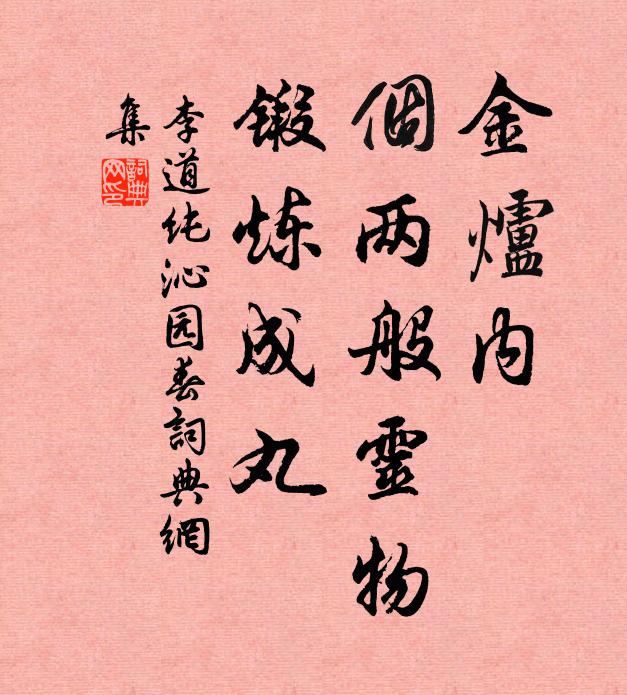 金爐内
個两般靈物
鍛炼成丸
李道纯沁园春詞典網
集
詞典网印